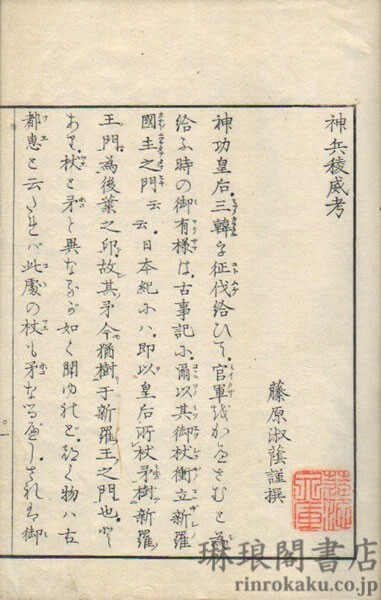 神兵稜威考
藤原淑蔭謹撰
神功皇后三韓を征伐給ひて官軍
給ふ時の御有様は古事記に爾以其御杖衝立新羅
國主之門云云日本紀にハ即以皇后所杖矛樹新羅
王門為後葉之印故其矛今猶樹于新羅王之門也と
あり杖と矛と異なるが如く聞ゆれど物ハ古
都恵と云 バ此處の杖も矛な されば御
琳琅閣書店
rinrokaku.co.jp